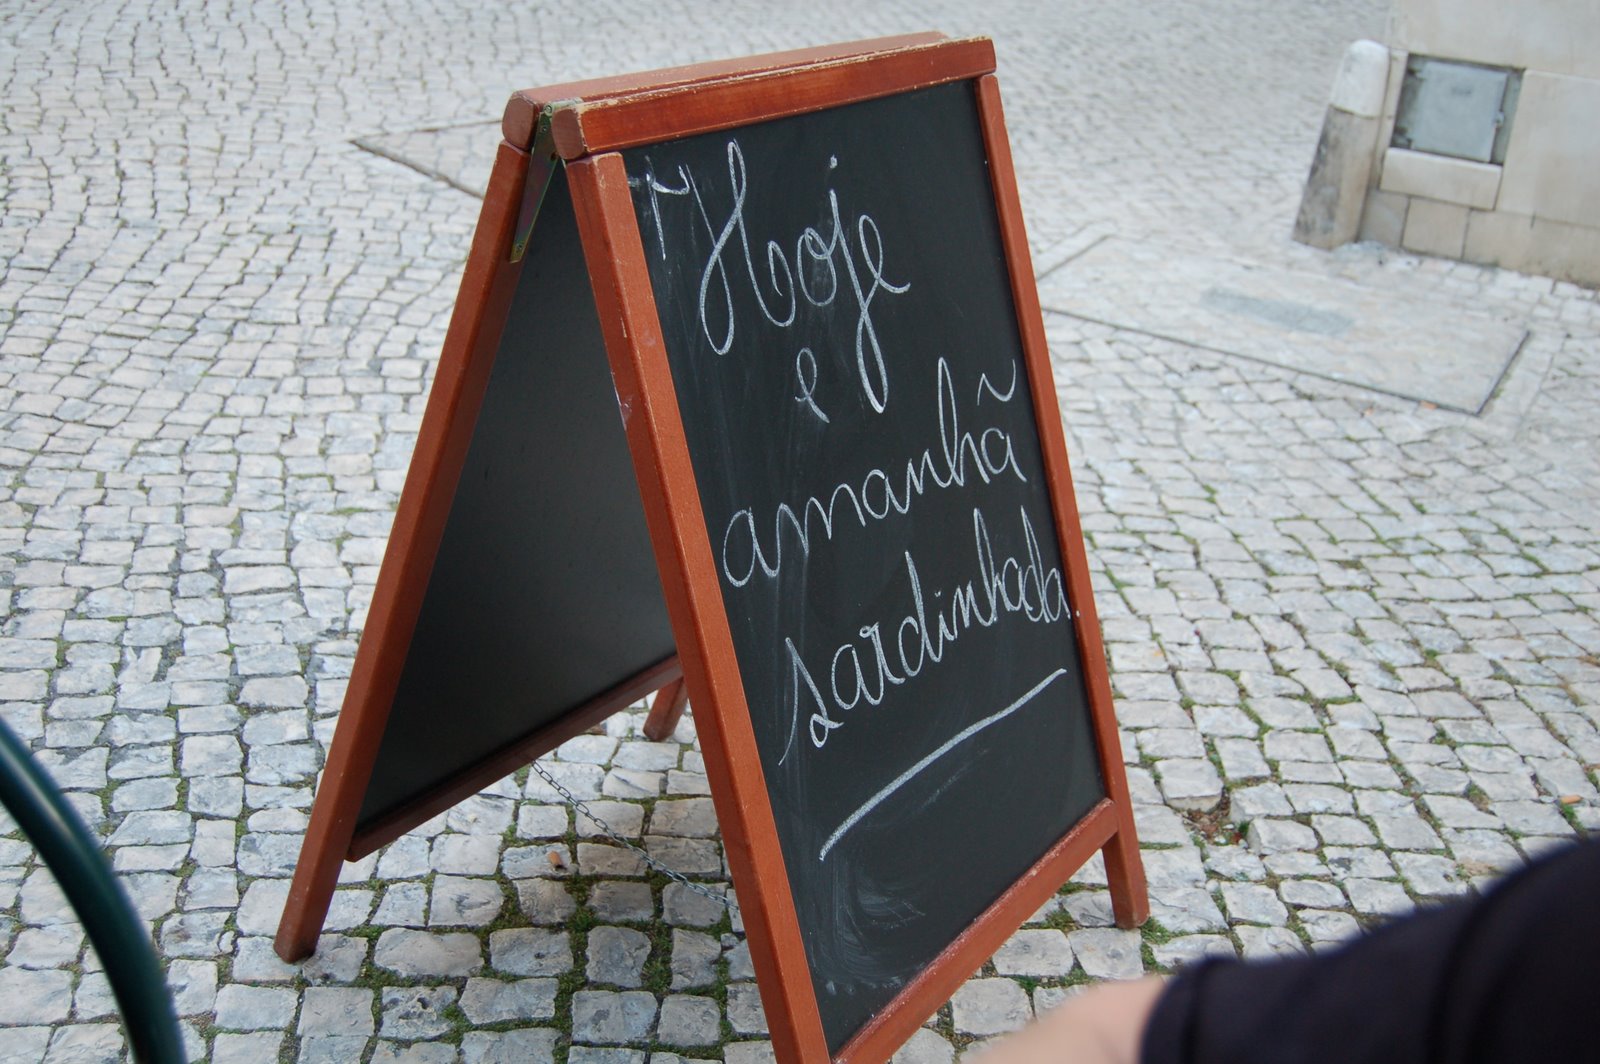 Hoje
e
amanhã
sardinhada.